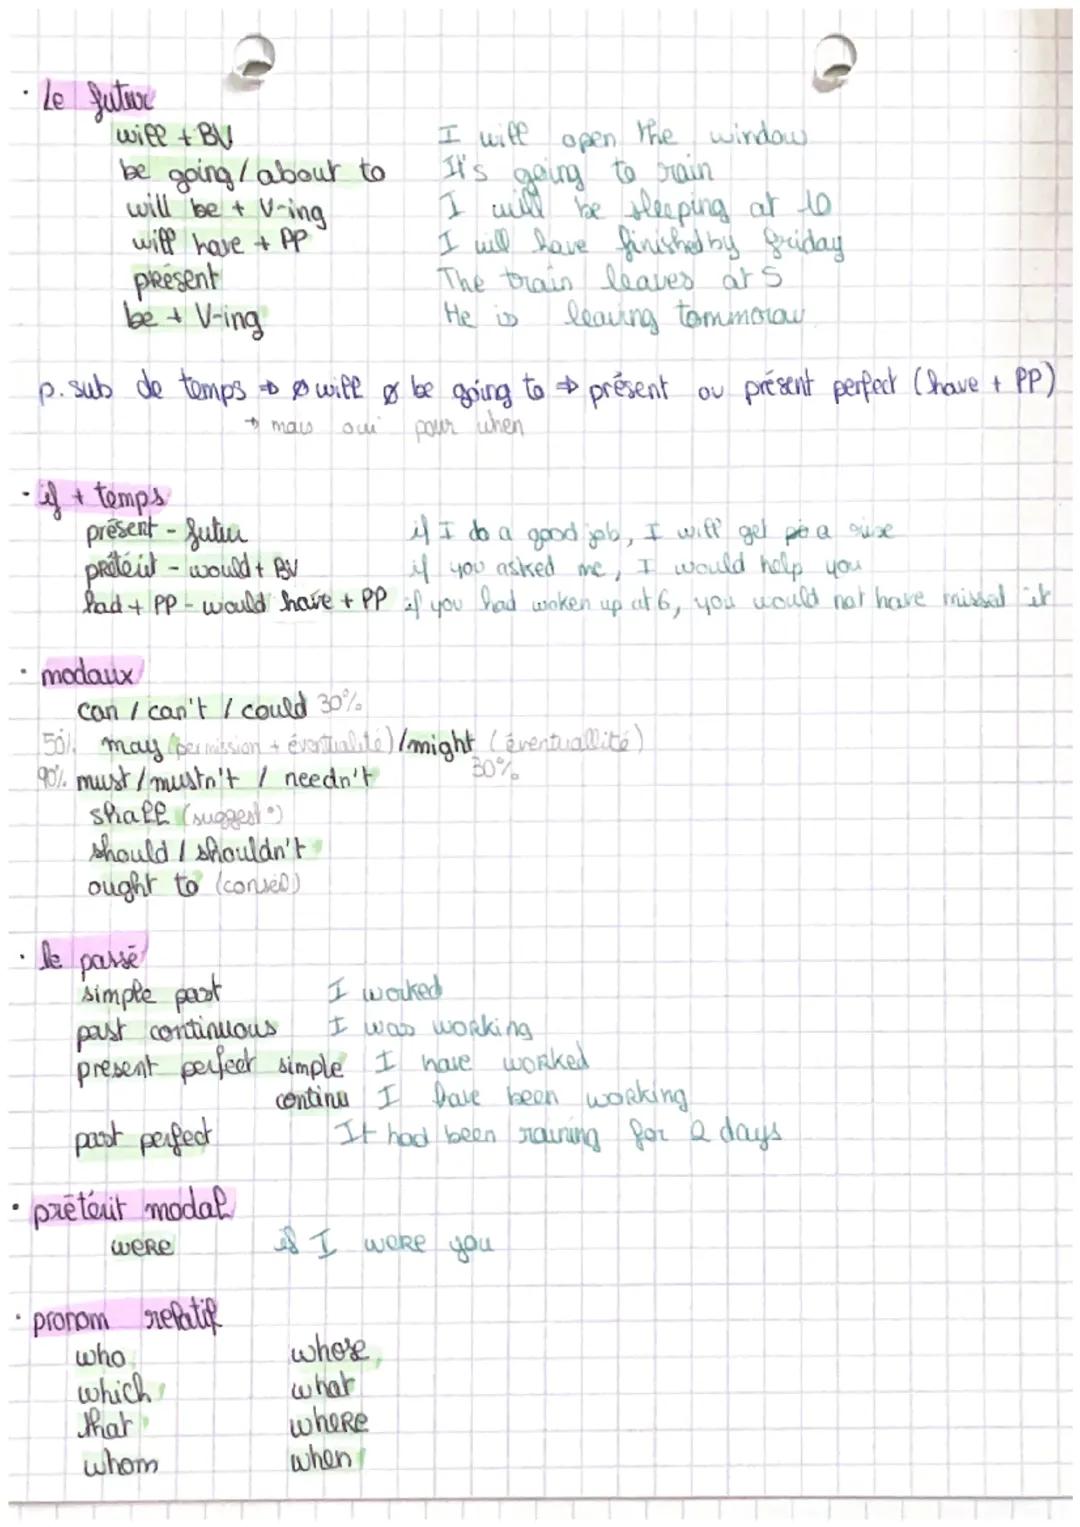 · Le futur
will + BV I will open the window
be going / about to It's going to rain
will be + V-ing I will be sleeping at 10
will have + PP I will have finished by friday
présent The train leaves at 5
be + V-ing He is leaving tommorow
p. sub de temps ⇒ ø will ø be going to ⇒ présent ou présent perfect (have + PP)
→ mais oui pour when
· if + temps
présent - futur if I do a good job, I will get a rise
prétérit - would + BV if you asked me, I would help you
had + PP - would have + PP if you had woken up at 6, you would not have missed it
· modaux
can / can't / could 30%
50% may (permission + éventualité) / might (éventuallité)
30%
90% must / mustn't / needn't
shall (suggest°)
should / shouldn't
ought to (conseil)
· le passé
simple past I worked
past continuous I was working
present perfect simple I have worked
continu I have been working
past perfect It had been raining for 2 days
· prétérit modal
were if I were you
· pronom relatif
who whose
which what
that where
whom when